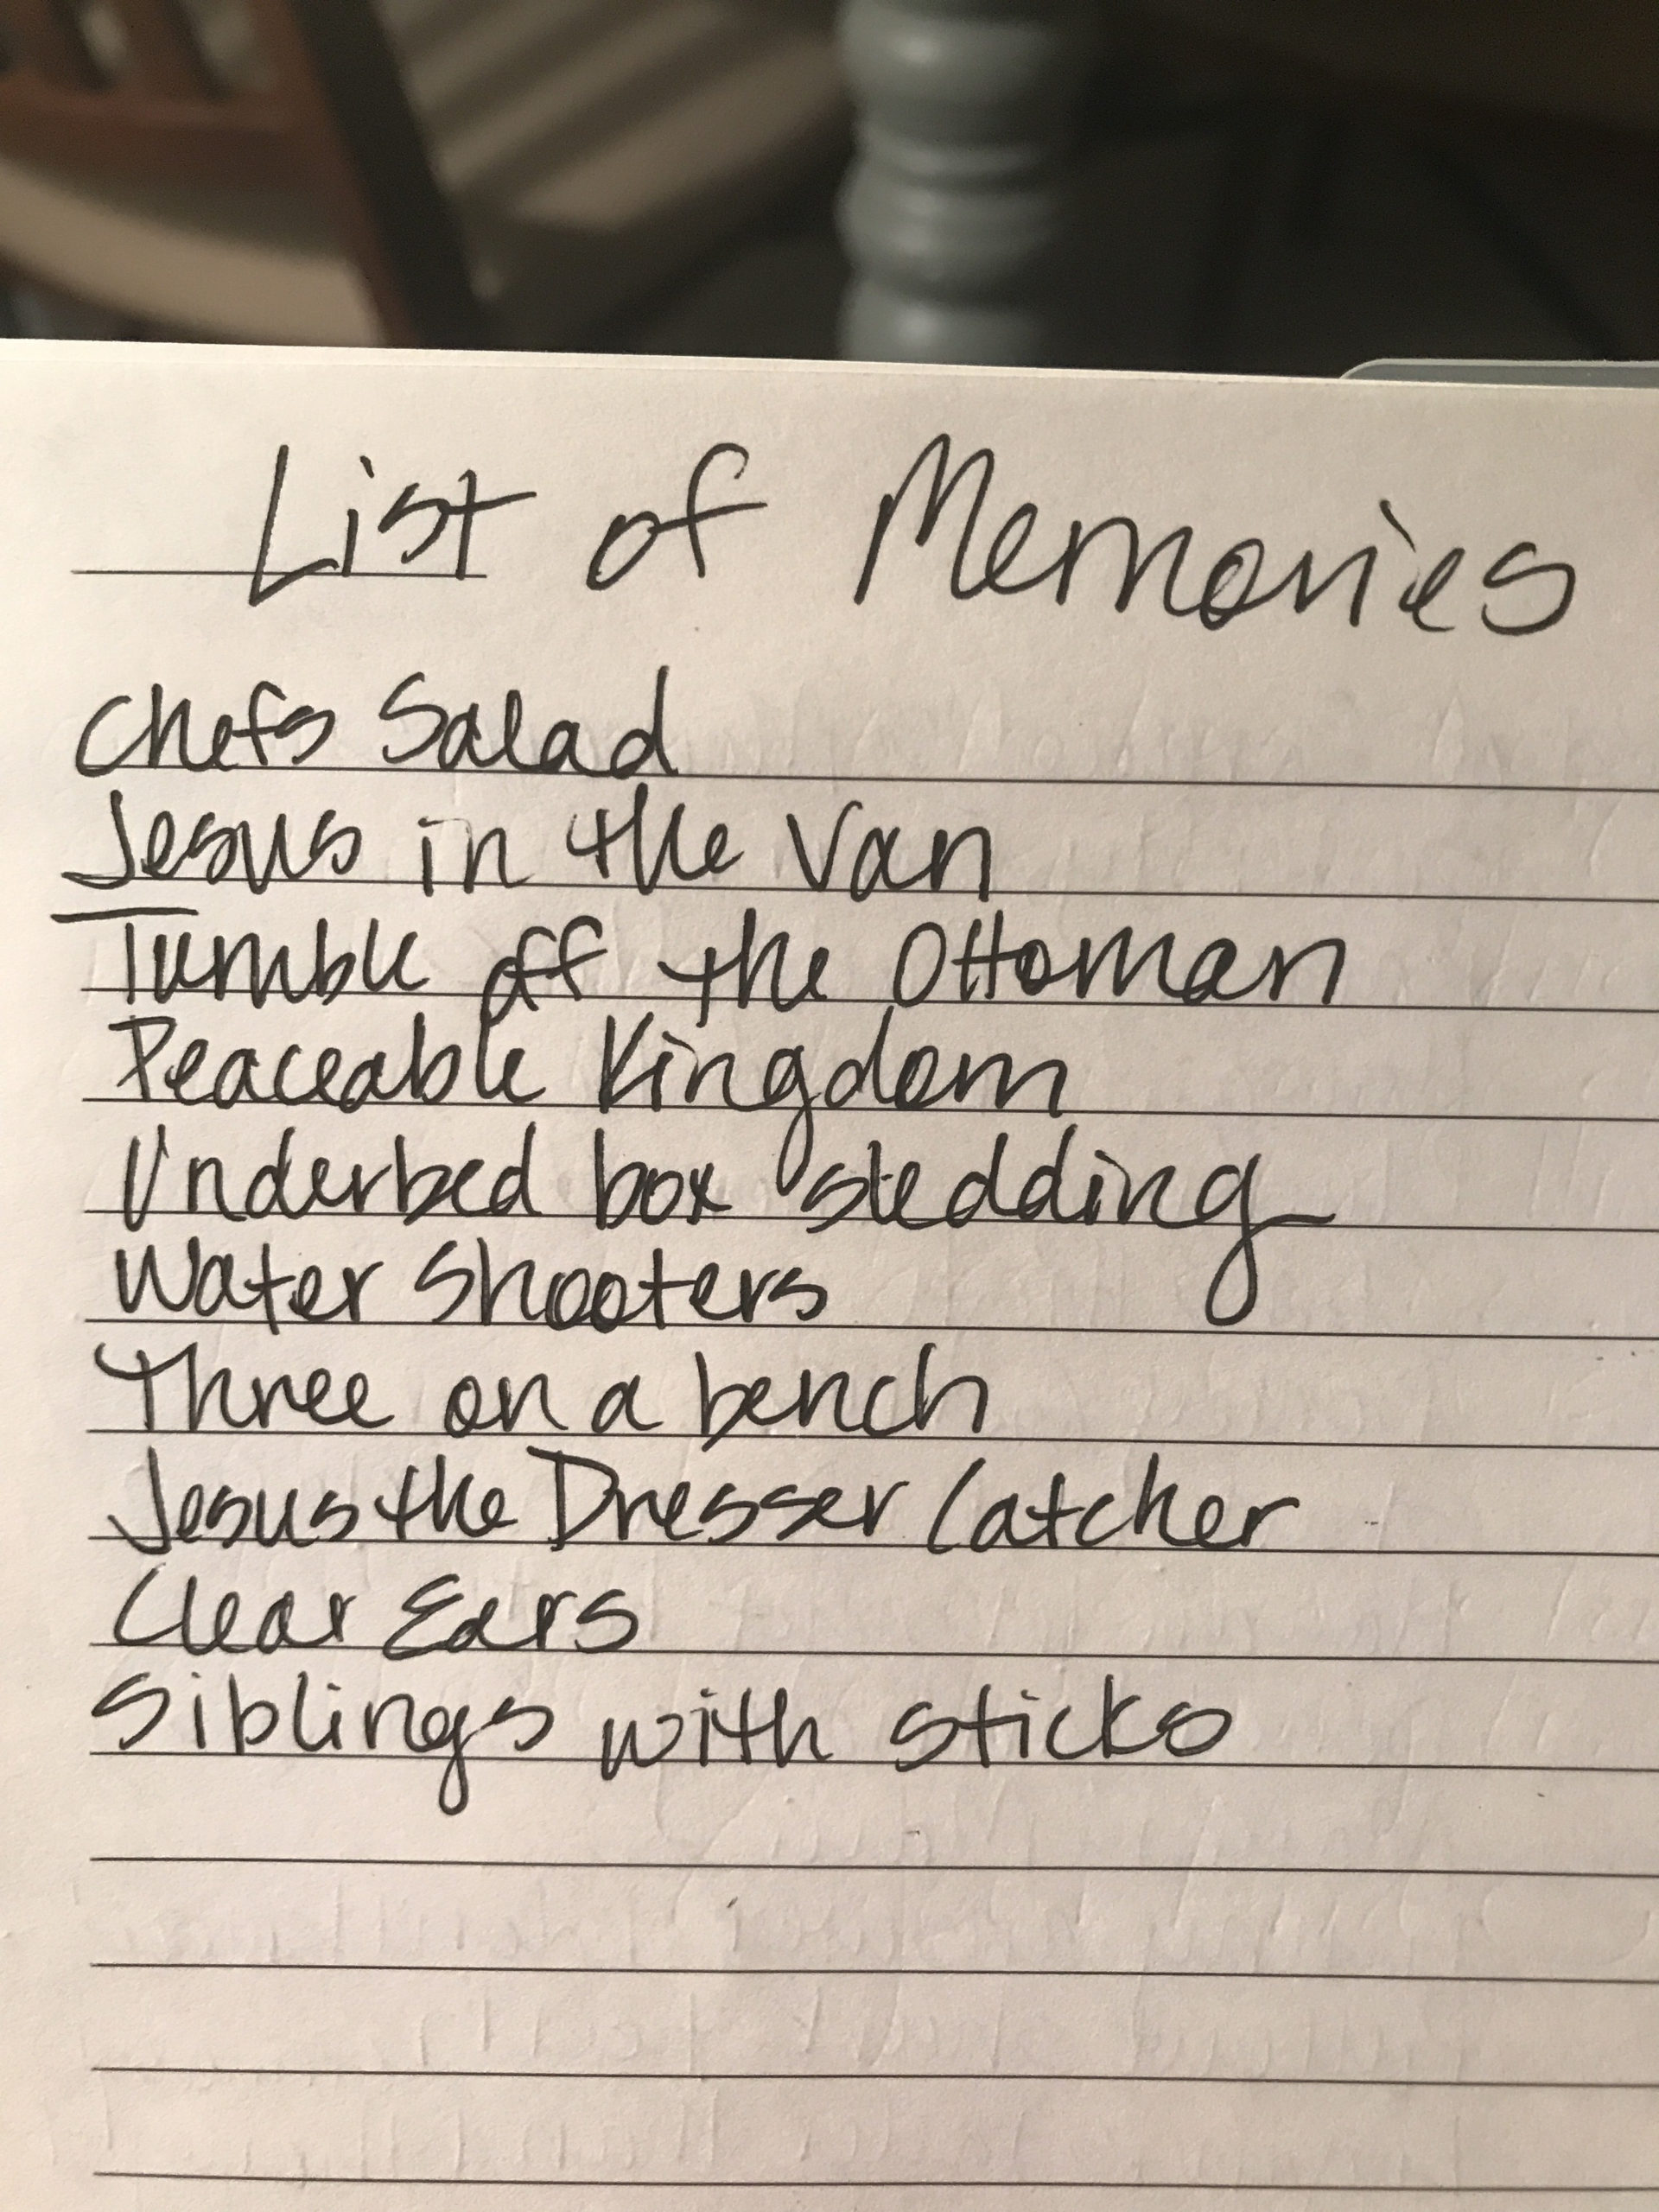 List of Memories
Chefs Salad
Jesus in the Van
Tumble off the Ottoman
Peaceable Kingdom
Underbed box sledding
Water Shooters
Three on a bench
Jesus the Dresser Catcher
Clear Ears
Siblings with sticks